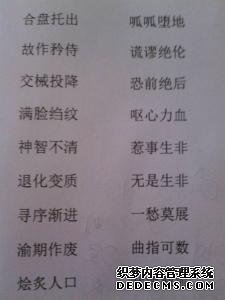 合盘托出 呱呱堕地
故作矜侍 谎谬绝伦
交械投降 恐前绝后
满脸绉纹 呕心力血
神智不清 惹事生非
退化变质 无是生非
寻序渐进 一愁莫展
渝期作废 曲指可数
烩炙人口
快乐学习 实现梦想